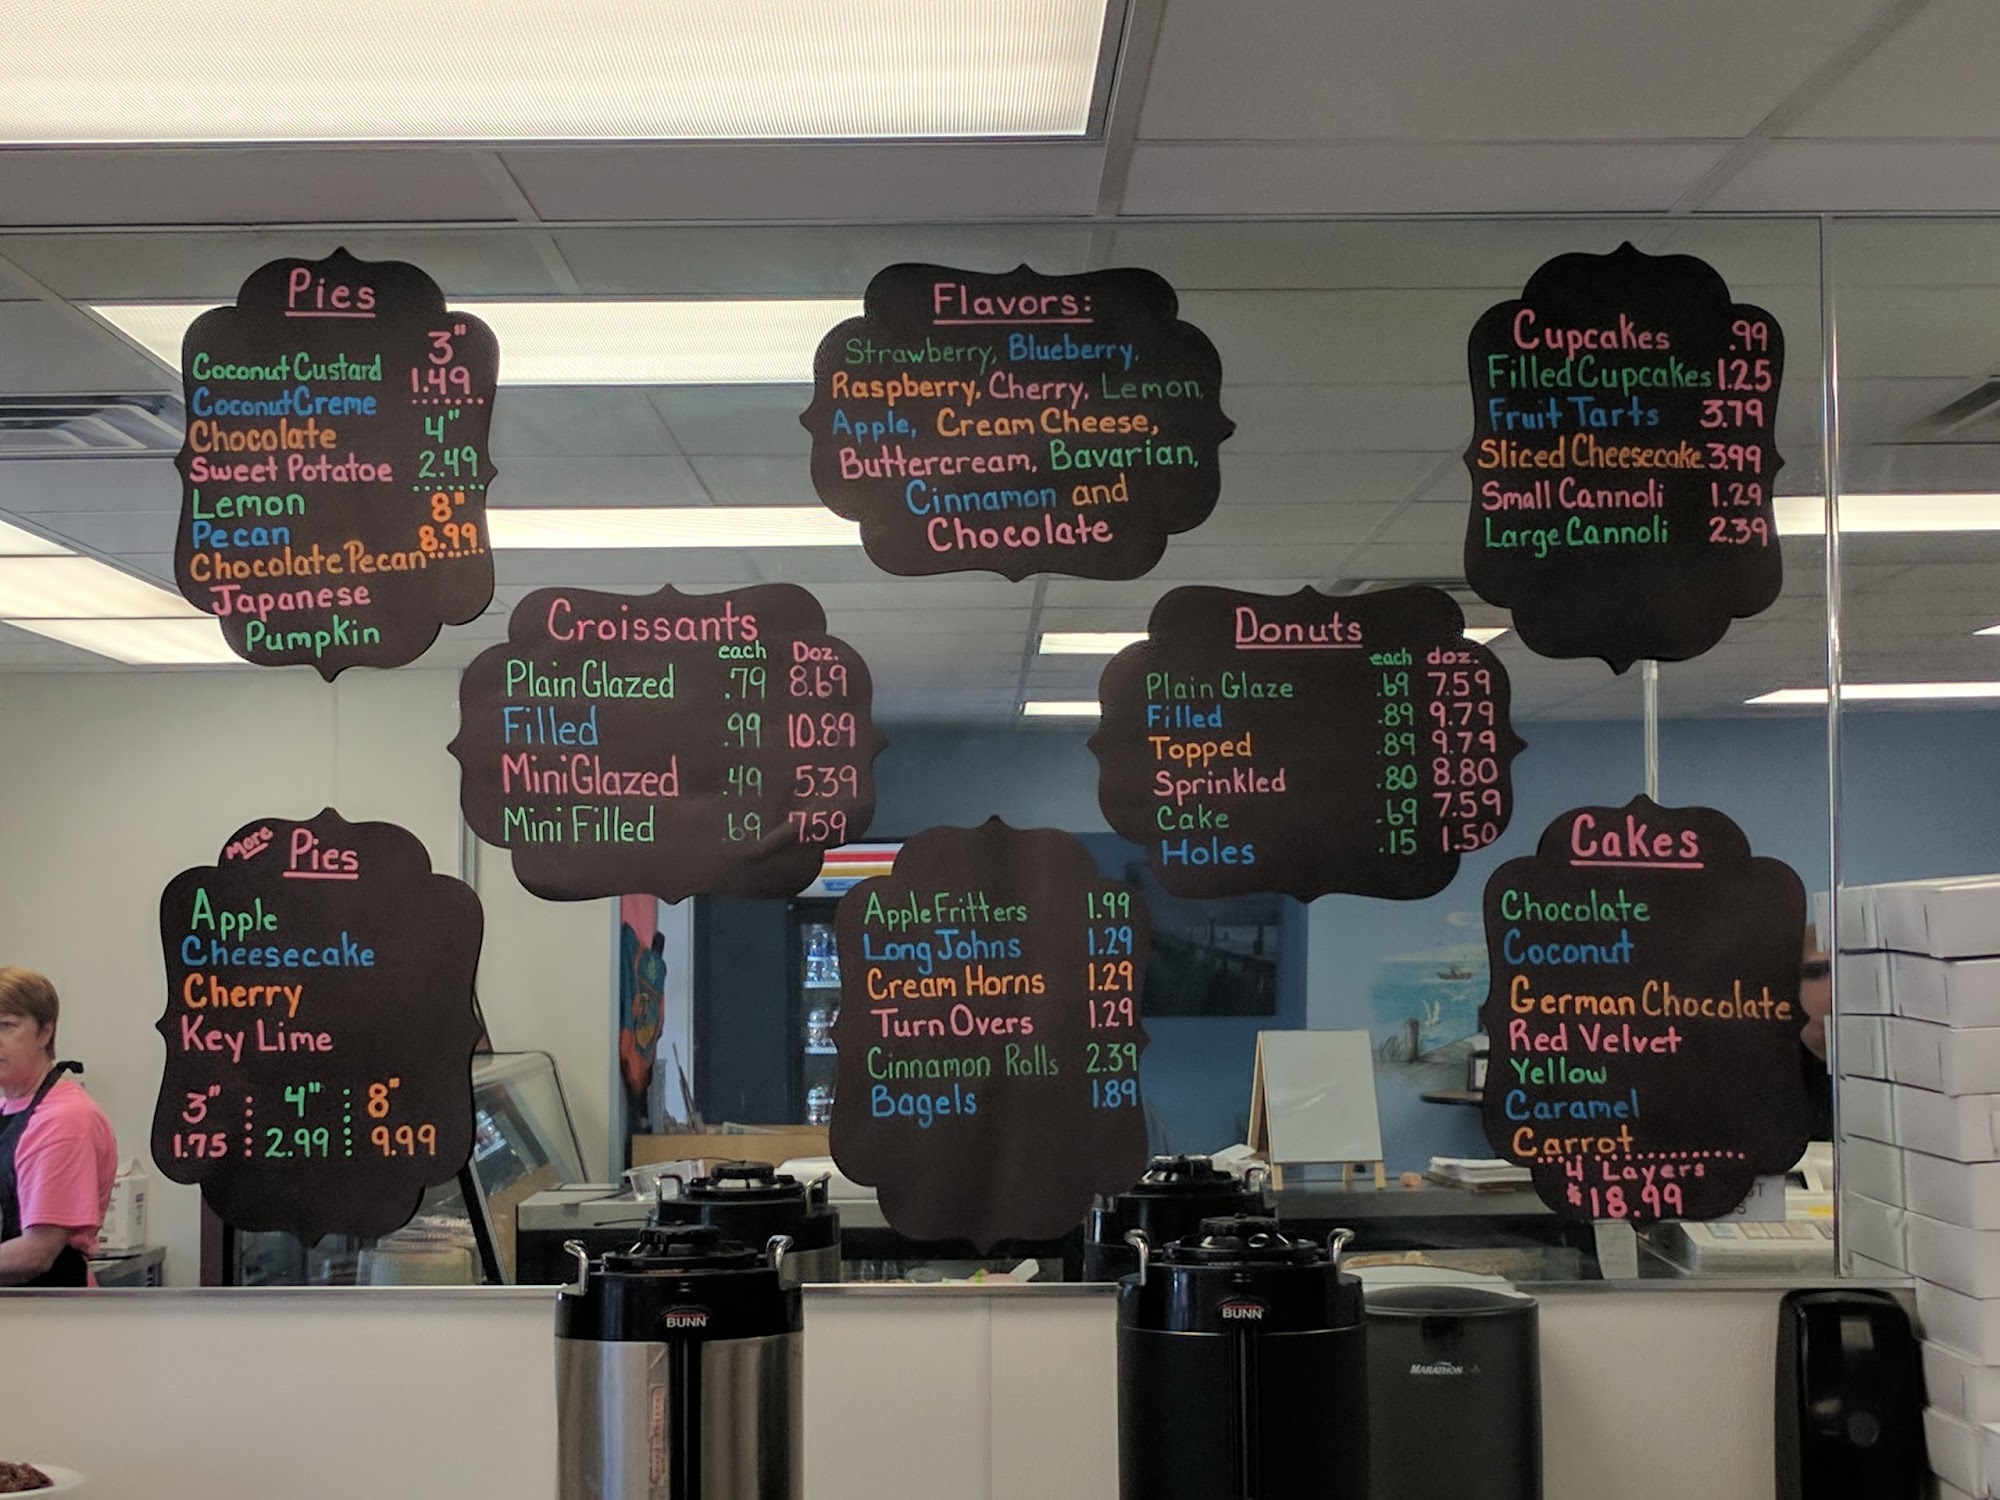 Pies
3"
Coconut Custard 1.49
Coconut Creme
Chocolate 4"
Sweet Potatoe 2.49
Lemon 8"
Pecan 8.99
Chocolate Pecan
Japanese
Pumpkin
Flavors:
Strawberry, Blueberry,
Raspberry, Cherry, Lemon,
Apple, Cream Cheese,
Buttercream, Bavarian,
Cinnamon and
Chocolate
Cupcakes .99
Filled Cupcakes 1.25
Fruit Tarts 3.79
Sliced Cheesecake 3.99
Small Cannoli 1.29
Large Cannoli 2.39
Croissants
each Doz.
Plain Glazed .79 8.69
Filled .99 10.89
Mini Glazed .49 5.39
Mini Filled .69 7.59
Donuts
each doz.
Plain Glaze .69 7.59
Filled .89 9.79
Topped .89 9.79
Sprinkled .80 8.80
Cake .69 7.59
Holes .15 1.50
More Pies
Apple
Cheesecake
Cherry
Key Lime
3" 4" 8"
1.75 2.99 9.99
Apple Fritters 1.99
Long Johns 1.29
Cream Horns 1.29
Turn Overs 1.29
Cinnamon Rolls 2.39
Bagels 1.89
Cakes
Chocolate
Coconut
German Chocolate
Red Velvet
Yellow
Caramel
Carrot
4 Layers
$18.99
BUNN
BUNN
MARATHON